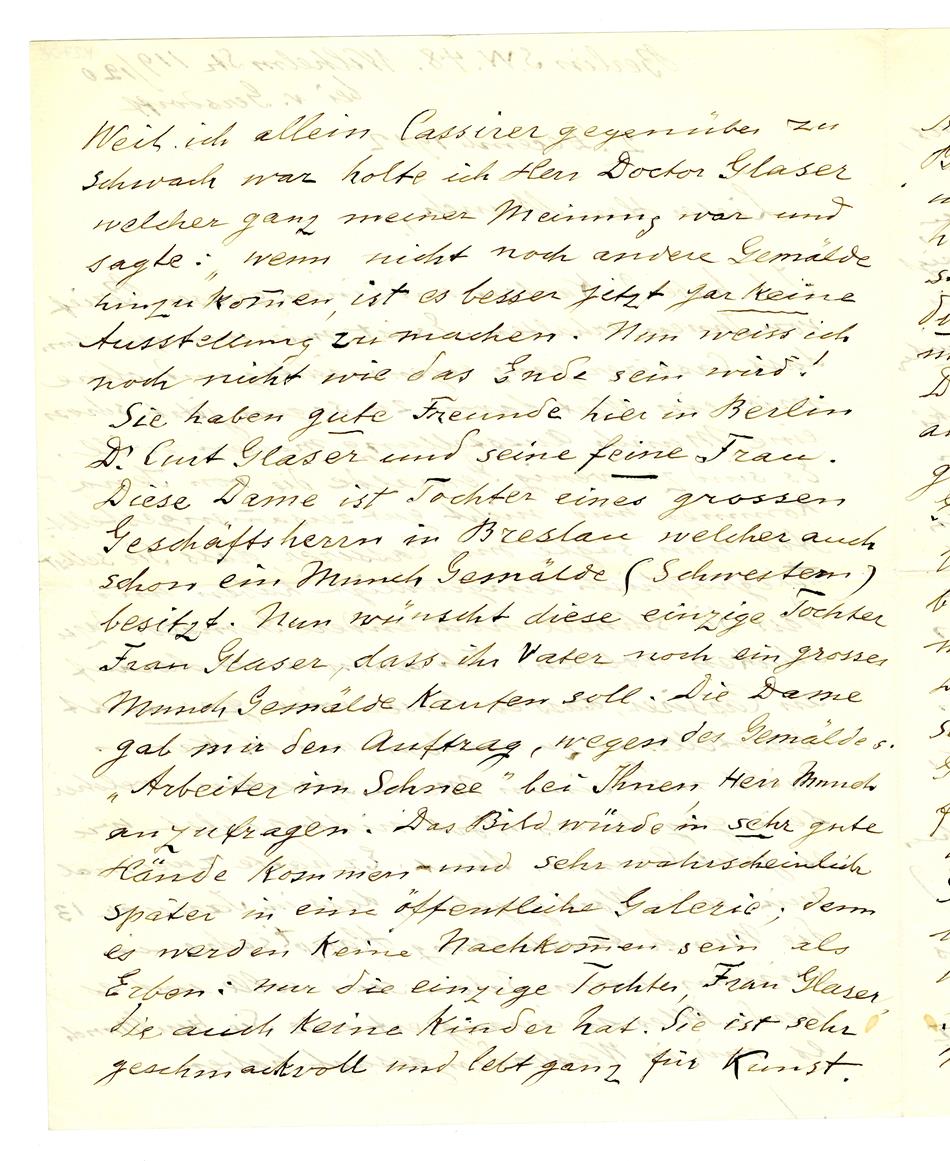 Weil ich allein Cassirer gegenüber zu
schwach war holte ich Herr Doctor Glaser
welcher ganz meiner Meinung war und
sagte: „wenn nicht noch andere Gemälde
hinzu kom̅en, ist es besser jetzt gar keine
Ausstellung zu machen. Nun weiss ich
noch nicht wie das Ende sein wird!
Sie haben gute Freunde hier in Berlin
Dr. Curt Glaser und seine feine Frau.
Diese Dame ist Tochter eines grossen
Geschäftsherrn in Breslau welcher auch
schon ein Munch Gemälde (Schwestern)
besitzt. Nun wünscht diese einzige Tochter
Frau Glaser, dass ihr Vater noch ein grosses
Munch Gemälde kaufen soll. Die Dame
gab mir den Auftrag, wegen des Gemäldes.
„Arbeiter im Schnee" bei Ihnen, Herr Munch
anzufragen. Das Bild würde in sehr gute
Hände kommen - und sehr wahrscheinlich
später in eine öffentliche Galerie; denn
es werden keine Nachkom̅en sein als
Erben: nur die einzige Tochter, Frau Glaser,
die auch keine Kinder hat. Sie ist sehr
geschmackvoll und lebt ganz für Kunst.